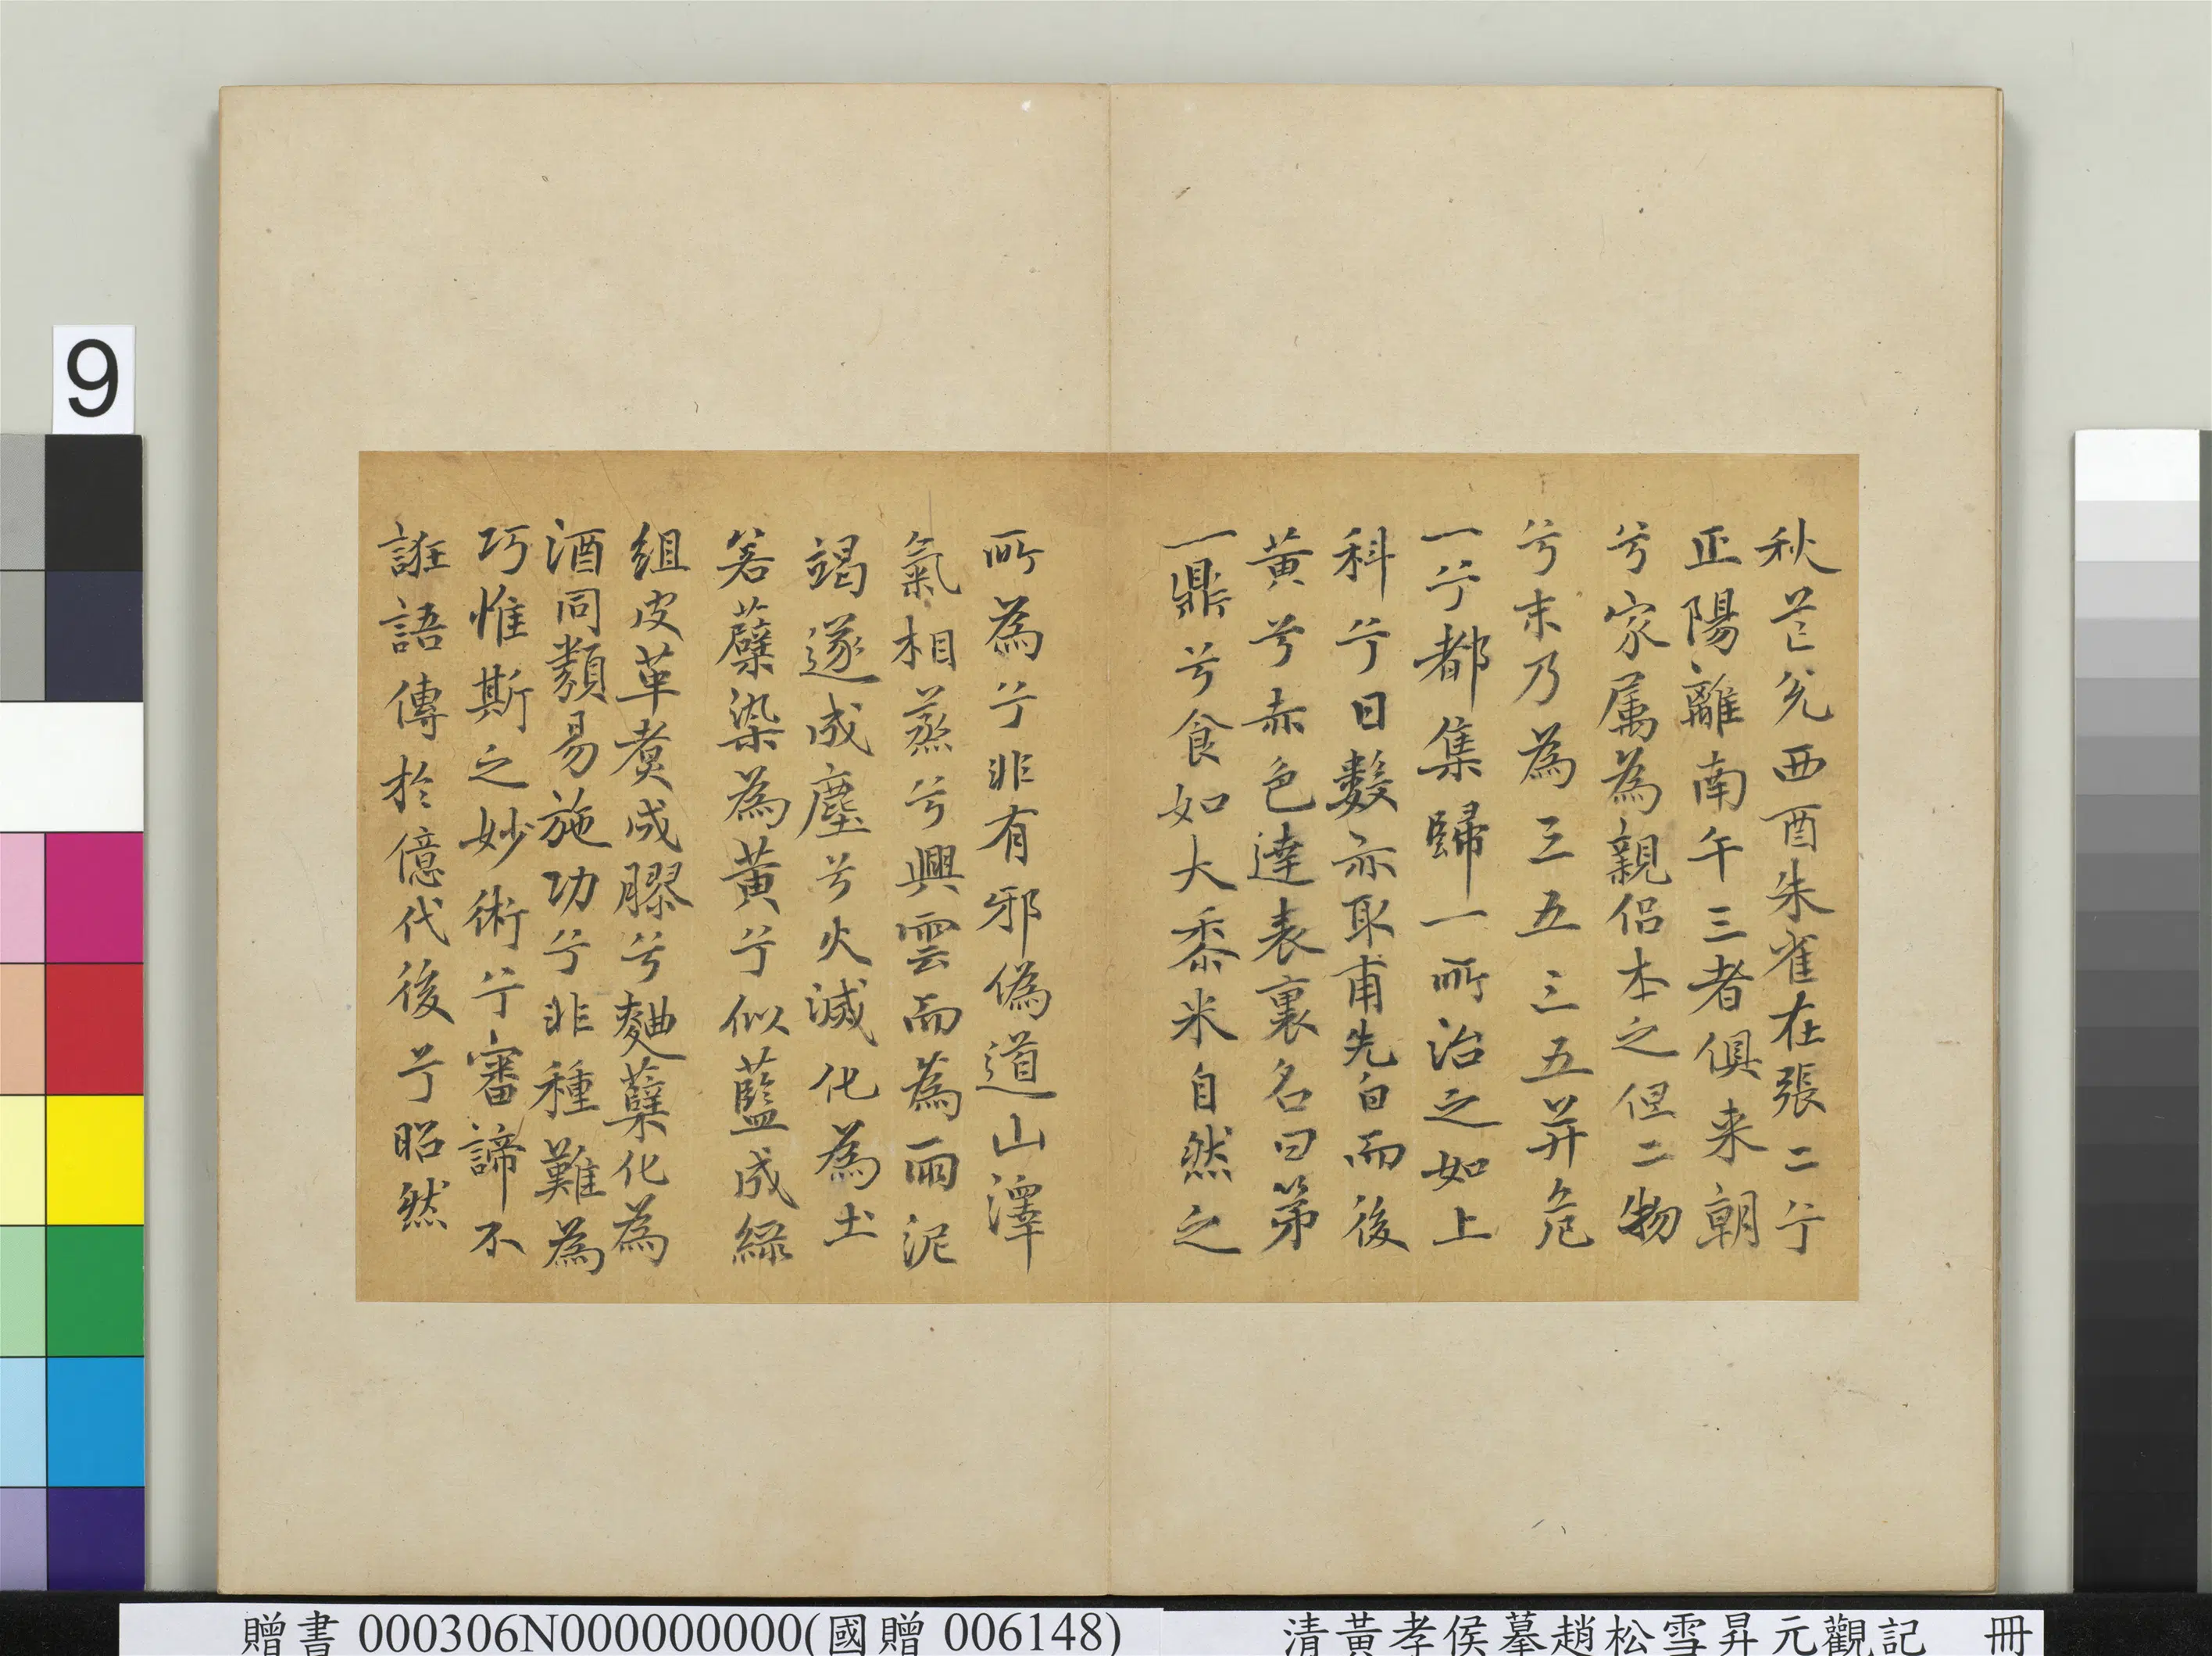 秋芒兊西酉朱雀在張二兮
正陽離南午三者俱来朝
兮家属為親侣本之但二物
兮末乃為三五三五并危
一兮都集歸一所治之如上
科兮日數亦取甫先白而後
黄兮赤色達表裏名曰第
一鼎兮食如大黍米自然之
所為兮非有邪偽道山澤
氣相蒸兮興雲而為雨泥
竭遂成塵兮火滅化為土
若蘗染為黄兮似藍成緑
組皮革煑成膠兮麴糵化為
酒同類易施功兮非種難為
巧惟斯之妙術兮審諦不
誑語傳於億代後兮昭然
9
贈書 000306N000000000(國贈 006148)
清黃孝侯摹趙松雪昇元觀記 冊